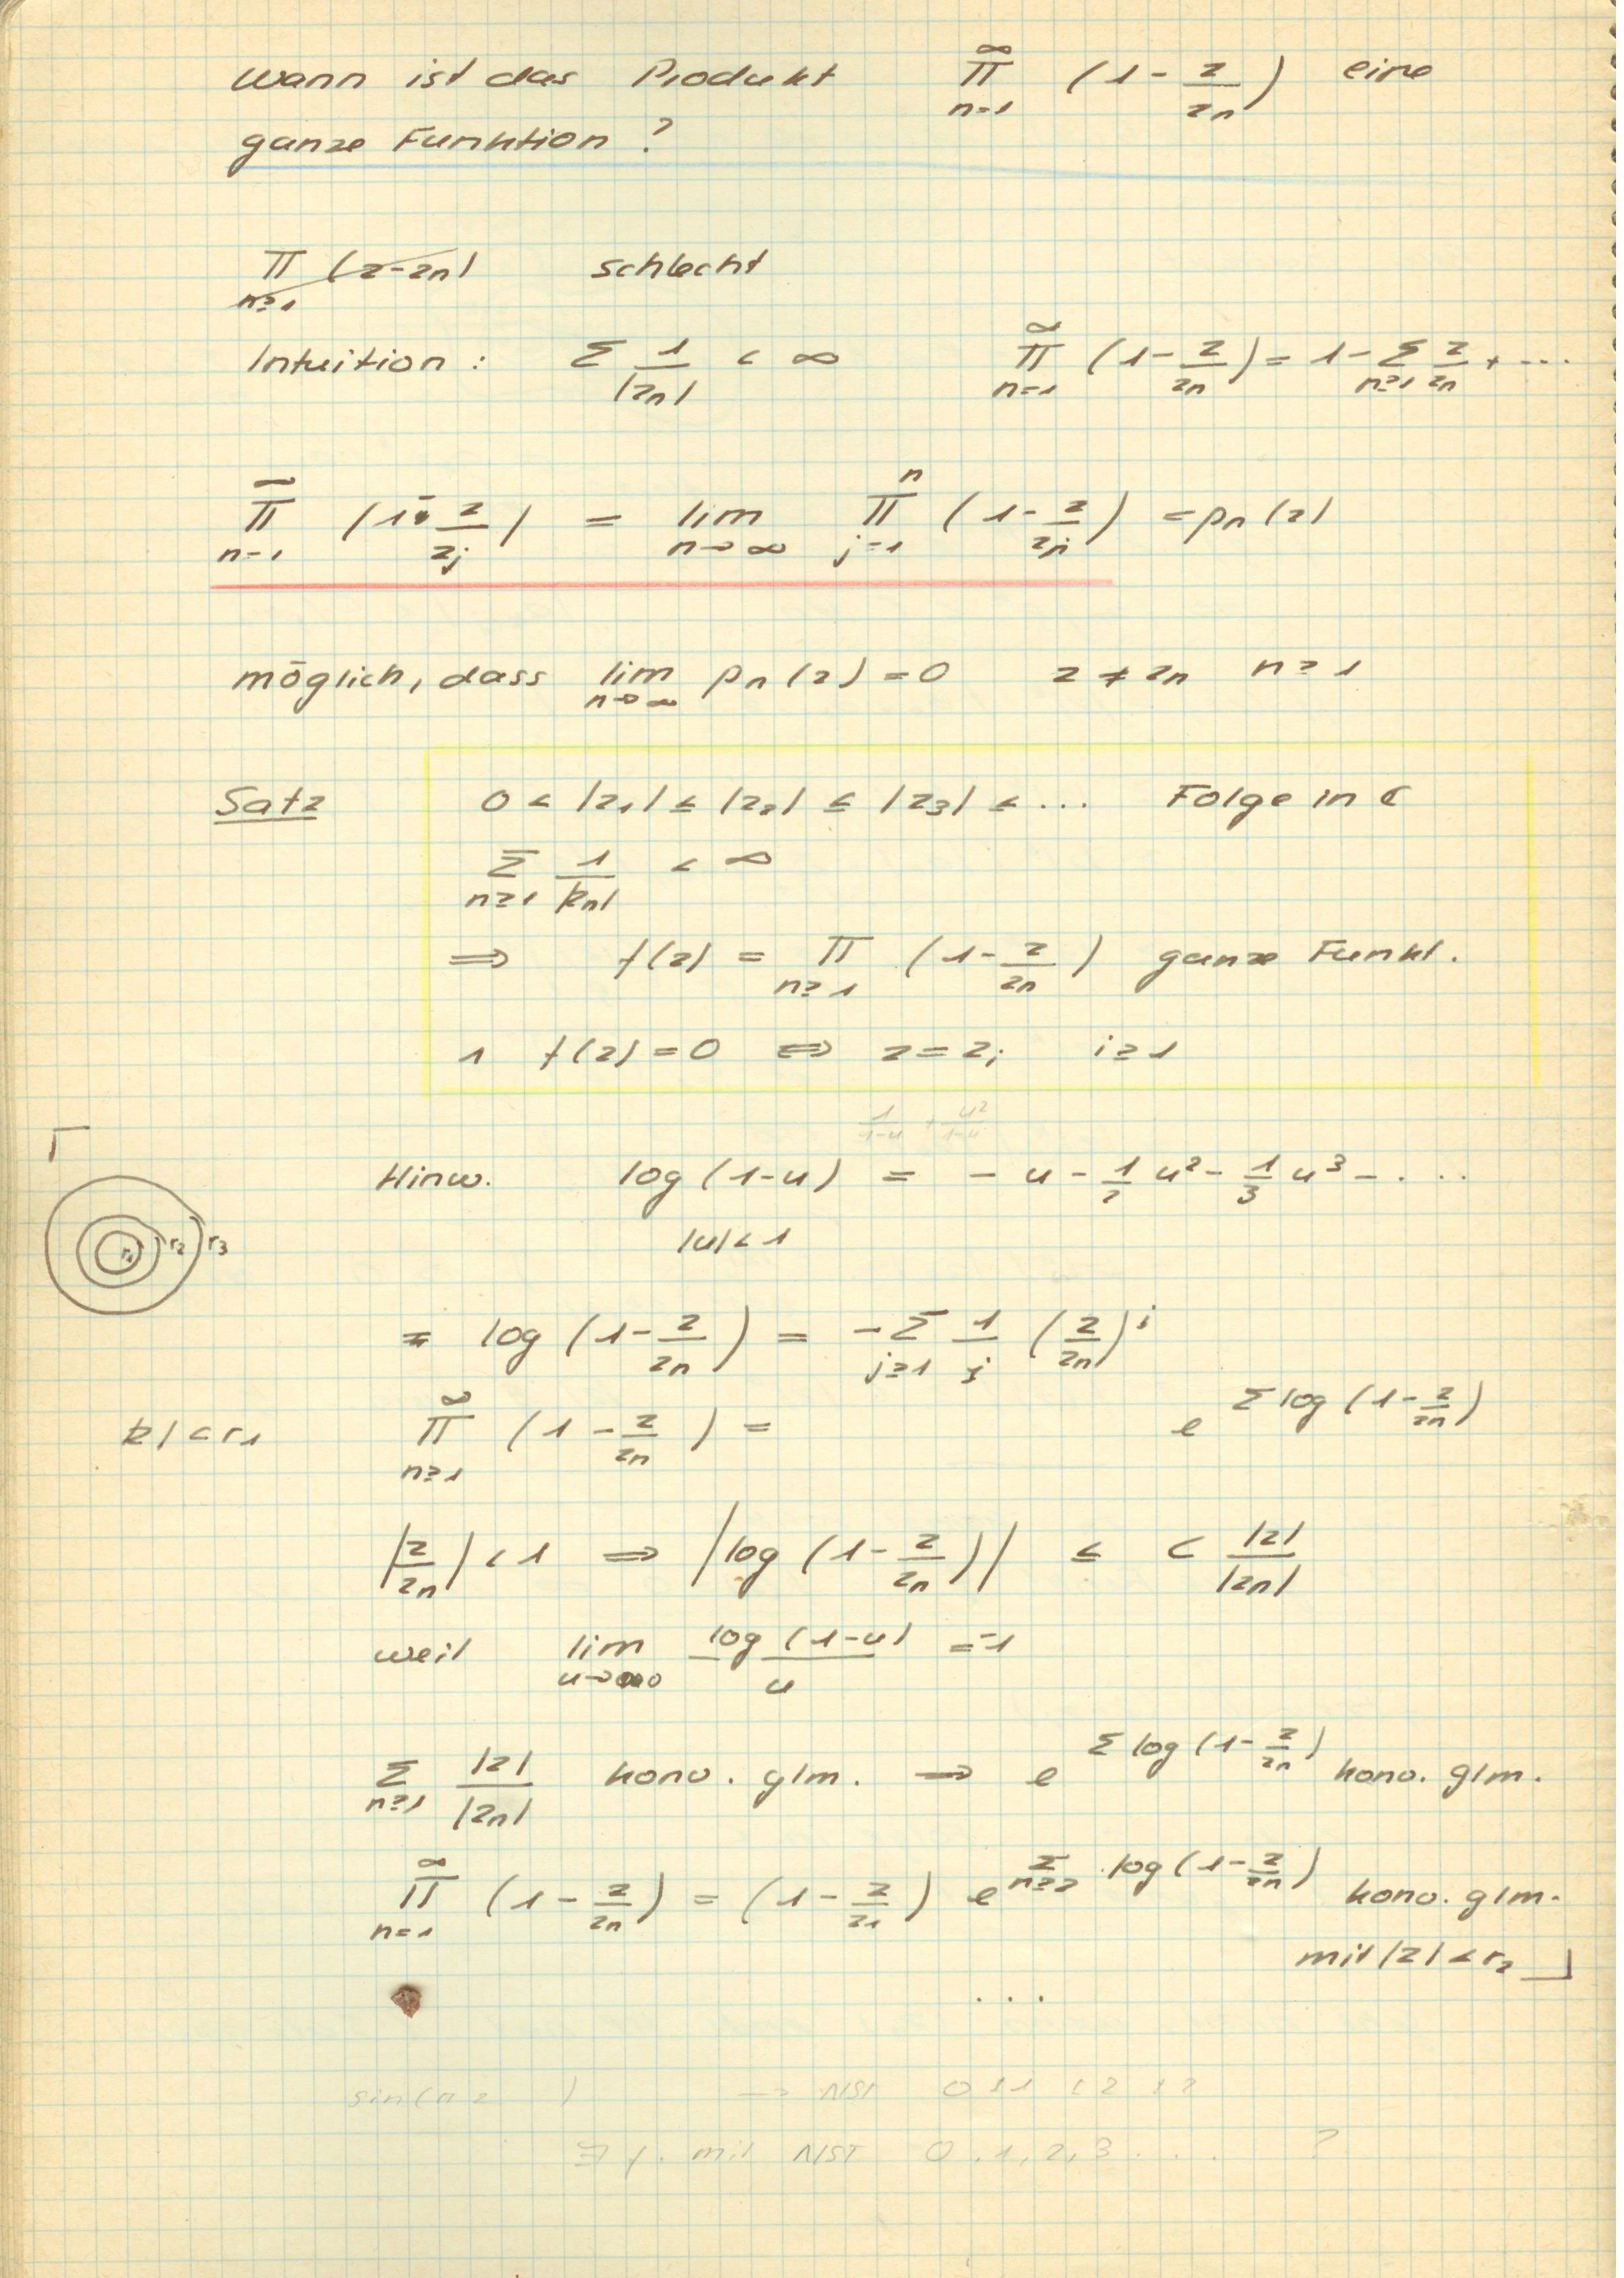 Wann ist das Produkt ∞ Π n=1 (1 - z/zn) eine
ganze Funktion ?
Π n≥1 (z-zn) schlecht
Intuition : Σ 1/|zn| < ∞ ∞ Π n=1 (1 - z/zn) = 1 - Σ n≥1 z/zn + ...
∞ Π n=1 (1 - z/zj) = lim n→∞ n Π j=1 (1 - z/zn) = pn(z)
möglich, dass lim n→∞ pn(z) = 0 z ≠ zn n ≥ 1
Satz 0 < |z1| ≤ |z2| ≤ |z3| ≤ ... Folge in ℂ
Σ n≥1 1/|zn| < ∞
⇒ f(z) = Π n≥1 (1 - z/zn) ganze Funkt.
1 f(z) = 0 ⇔ z = zi i ≥ 1
1/1-u + u²/1-u
Γ
Hinw. log (1-u) = - u - 1/2 u² - 1/3 u³ - ....
|u| < 1
r1 r2 r3
= log (1 - z/zn) = - Σ j≥1 1/j (z/zn)^j
|z| < r1 ∞ Π n≥1 (1 - z/zn) = e^Σ log (1 - z/zn)
|z/zn| < 1 ⇒ |log (1 - z/zn)| ≤ C |z|/|zn|
weil lim u→0 log (1-u)/u = -1
Σ n≥1 |z|/|zn| konv. glm. → e^Σ log (1 - z/zn) konv. glm.
∞ Π n=1 (1 - z/zn) = (1 - z/z1) e^Σ n≥2 log (1 - z/zn) konv. glm.
mit |z| < r2 ┘
...
sin(π z ) → NST 0 ±1 ±2
∃ f. mit NST 0, 1, 2, 3 .... ?